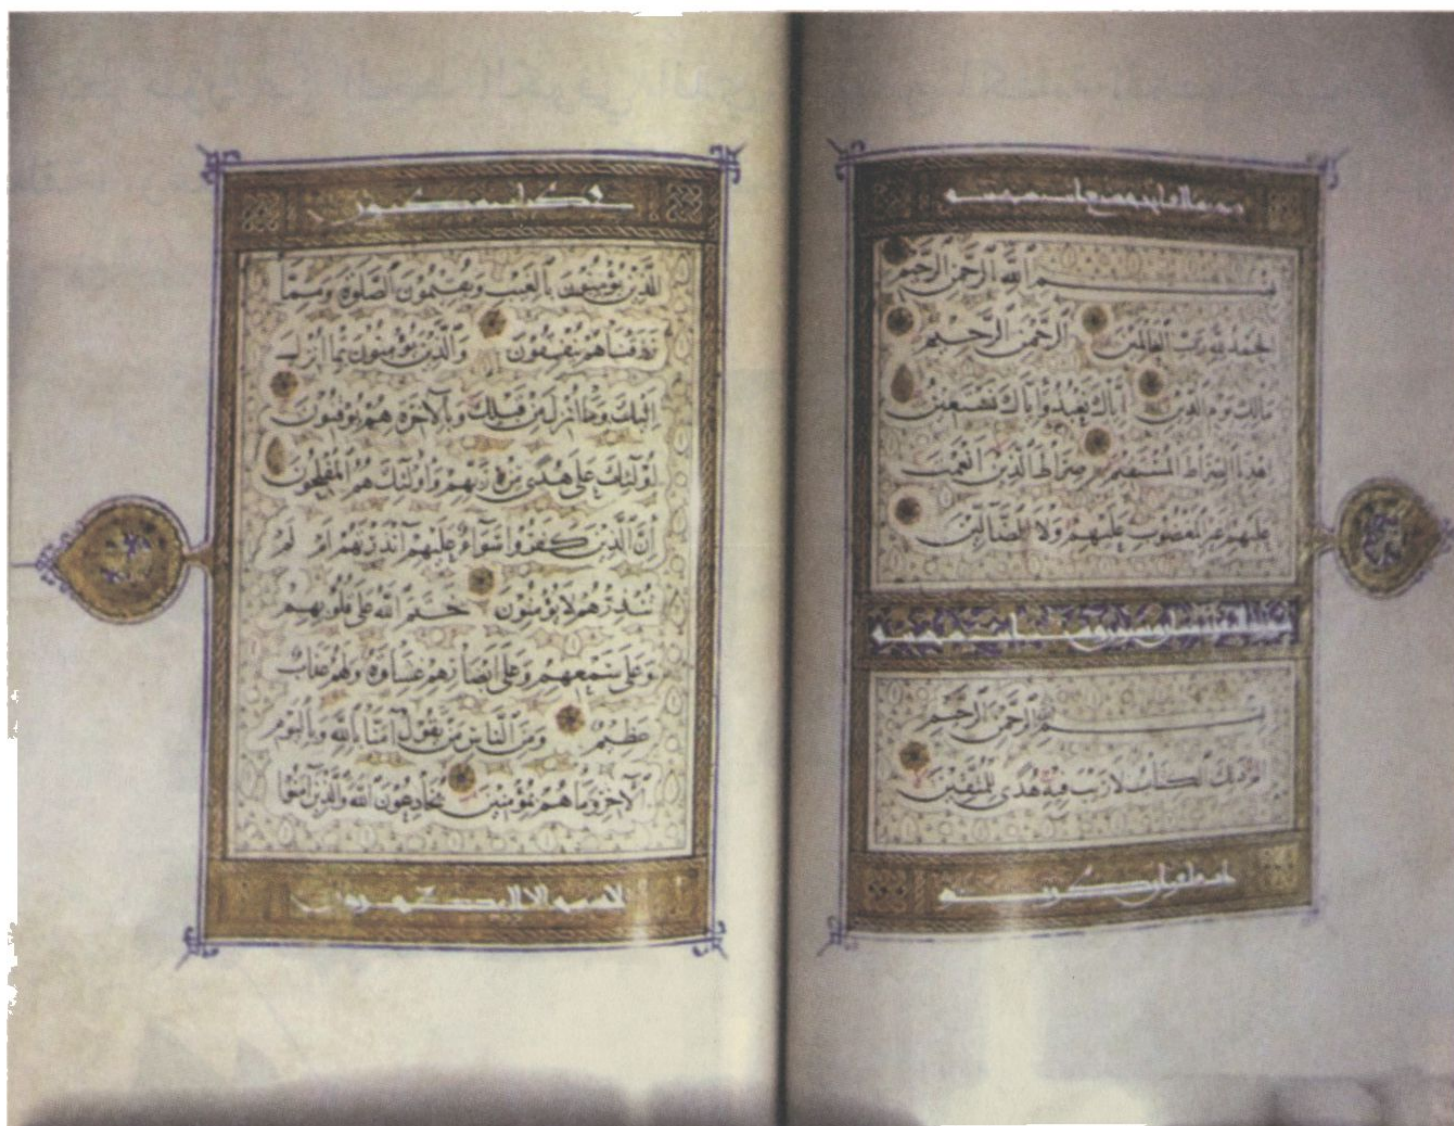 بِسْمِ اللَّهِ الرَّحْمَنِ الرَّحِيمِ
الْحَمْدُ لِلَّهِ رَبِّ الْعَالَمِينَ الرَّحْمَنِ الرَّحِيمِ
مَالِكِ يَوْمِ الدِّينِ إِيَّاكَ نَعْبُدُ وَإِيَّاكَ نَسْتَعِينُ
اهْدِنَا الصِّرَاطَ الْمُسْتَقِيمَ صِرَاطَ الَّذِينَ أَنْعَمْتَ
عَلَيْهِمْ غَيْرِ الْمَغْضُوبِ عَلَيْهِمْ وَلَا الضَّالِّينَ
بِسْمِ الرَّحْمَنِ الرَّحِيمِ
الم ذَلِكَ الْكِتَابُ لَا رَيْبَ فِيهِ هُدًى لِلْمُتَّقِينَ
انه لقران كريم
في كتاب مكنون
الَّذِينَ يُؤْمِنُونَ بِالْغَيْبِ وَيُقِيمُونَ الصَّلَوةَ وَمِمَّا
رَزَقْنَاهُمْ يُنْفِقُونَ وَالَّذِينَ يُؤْمِنُونَ بِمَا أُنْزِلَ
إِلَيْكَ وَمَا أُنْزِلَ مِنْ قَبْلِكَ وَبِالْآخِرَةِ هُمْ يُوقِنُونَ
أُولَئِكَ عَلَى هُدًى مِنْ رَبِّهِمْ وَأُولَئِكَ هُمُ الْمُفْلِحُونَ
إِنَّ الَّذِينَ كَفَرُوا سَوَآءٌ عَلَيْهِمْ أَأَنْذَرْتَهُمْ أَمْ لَمْ
تُنْذِرْهُمْ لَا يُؤْمِنُونَ خَتَمَ اللَّهُ عَلَى قُلُوبِهِمْ
وَعَلَى سَمْعِهِمْ وَعَلَى أَبْصَارِهِمْ غِشَاوَةٌ وَلَهُمْ عَذَابٌ
عَظِيمٌ وَمِنَ النَّاسِ مَنْ يَقُولُ آمَنَّا بِاللَّهِ وَبِالْيَوْمِ
الْآخِرِ وَمَا هُمْ بِمُؤْمِنِينَ يُخَادِعُونَ اللَّهَ وَالَّذِينَ آمَنُوا
لا يمسه الا المطهرون